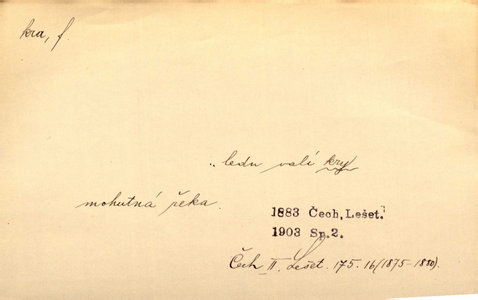 kra, f.
„ledu valí kry
mohutná řeka.
1883 Čech, Lešet.
1903 Sp.2.
Čech II. Lešet. 175. 16 (1875-1880).